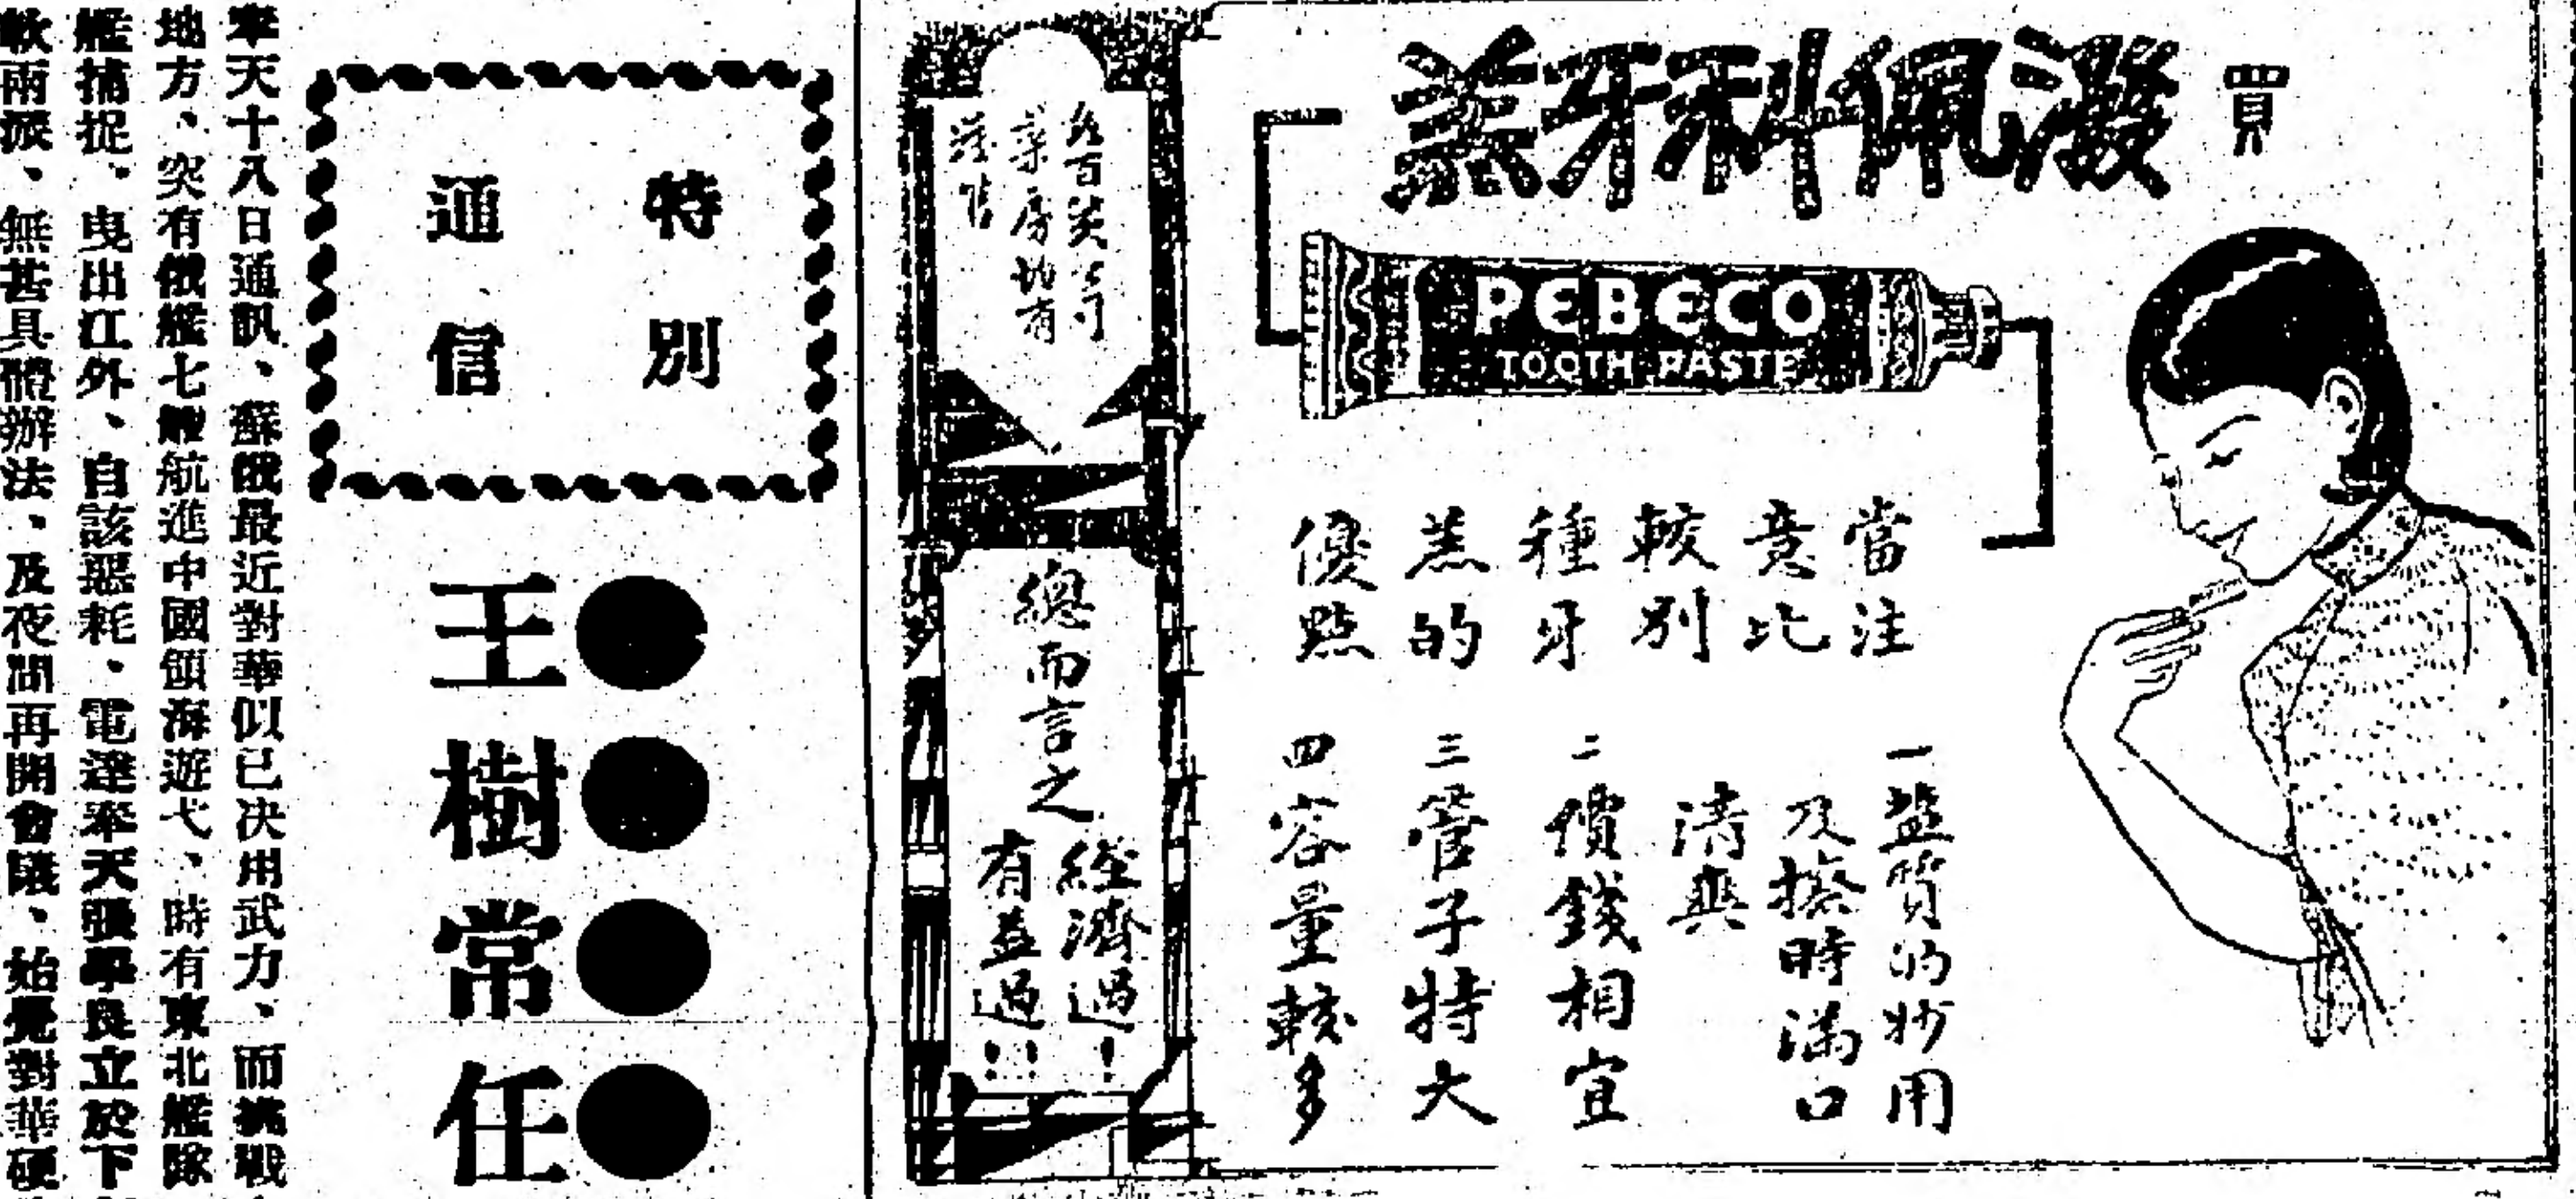 買
潑佩科牙羔
PEBECO
TOOTH PASTE
當注
意比
較別
種牙
羔的
優點
一鹽質的妙用
及擦時滿口
清爽
二價錢相宜
三管子特大
四容量較多
各百貨公司
藥房均有
總而言之
經濟過!
有益過!!
特別
通信
●●●●
王樹常任
奉天十八日通訊、蘇俄最近對華似已决用武力、而挑戰
地方、突有俄艦七艘航進中國領海遊弋、時有東北艦隊
艦捕捉、曳出江外、自該惡耗、電達奉天張學良立於下
軟兩派、無甚具體辦法、及夜間再開會議、始覺對華硬